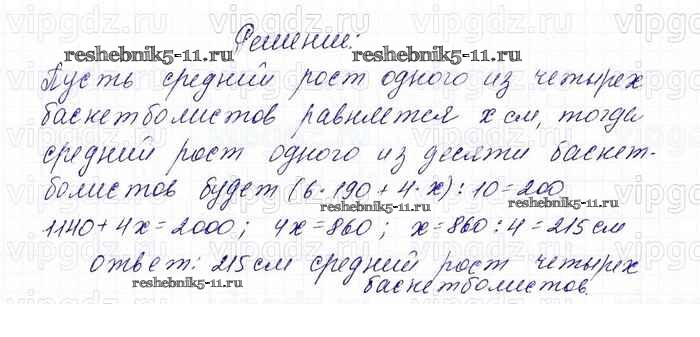 vipgdz.ru vipgdz.ru vipgdz.ru vipgdz.ru
Решение:
reshebnik5-11.ru reshebnik5-11.ru
Пусть средний рост одного из четырех
баскетболистов равняется x см, тогда
средний рост одного из десяти баскет-
болистов будет (6·190+4·x):10=200
reshebnik5-11.ru reshebnik5-11.ru
1140+4x=2000; 4x=860; x=860:4=215 см
ответ: 215 см средний рост четырех
reshebnik5-11.ru
баскетболистов.